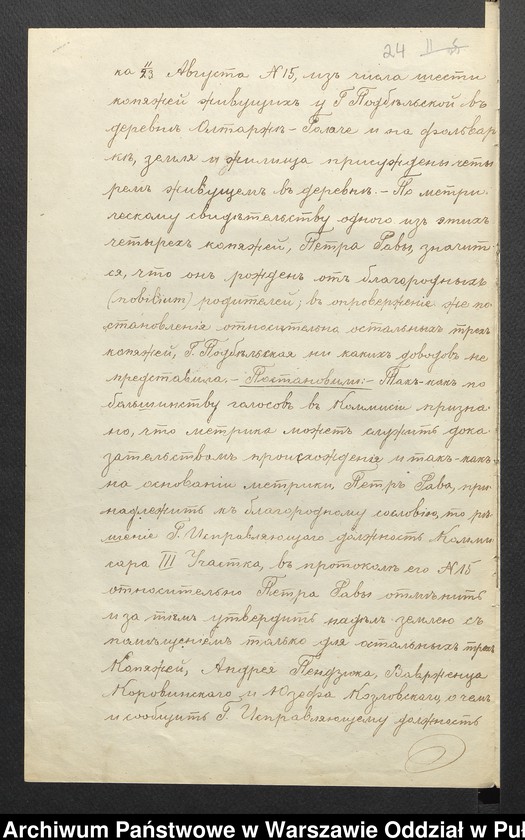 24
ка 11/23 Августа N 15, изъ числа шести
коняжей живущихъ у Г Подбѣльской въ
деревнѣ Олтаржъ-Голаче и на фольвар
кѣ, земля и жилища присуждены четы
ремъ живущемъ въ деревнѣ. - По метри-
ческому свидѣтельству одного изъ этихъ
четырехъ коняжей, Петра Равы, значит-
ся, что онъ рожденъ отъ благородныхъ
(nobilium) родителей; въ опроверженіе же по
становленія относительно остальныхъ трехъ
коняжей, Г. Подбѣльская ни какихъ доводовъ не
представила. - Постановили: - Такъ-какъ по
большинству голосовъ въ Коммисіи призна-
но, что метрика можетъ служить дока
зательствомъ происхожденія и такъ-какъ
на основаніи метрики, Петръ Рава, при
надлежитъ къ благородному сословію, то рѣ
шеніе Г. Исправляющаго должность Комми
сара III Участка, въ протоколѣ его N 15
относительно Петра Равы отмѣнить
и за тѣмъ утвердить надѣлъ землею съ
помѣщеніемъ только для остальныхъ трехъ
Коняжей, Андрея Пендзюка, Вавржеица
Коровинскаго и Юзефа Козловскаго, о чемъ
и сообщить Г. Исправляющему должность
Archiwum Państwowe w Warszawie Oddział w Puł